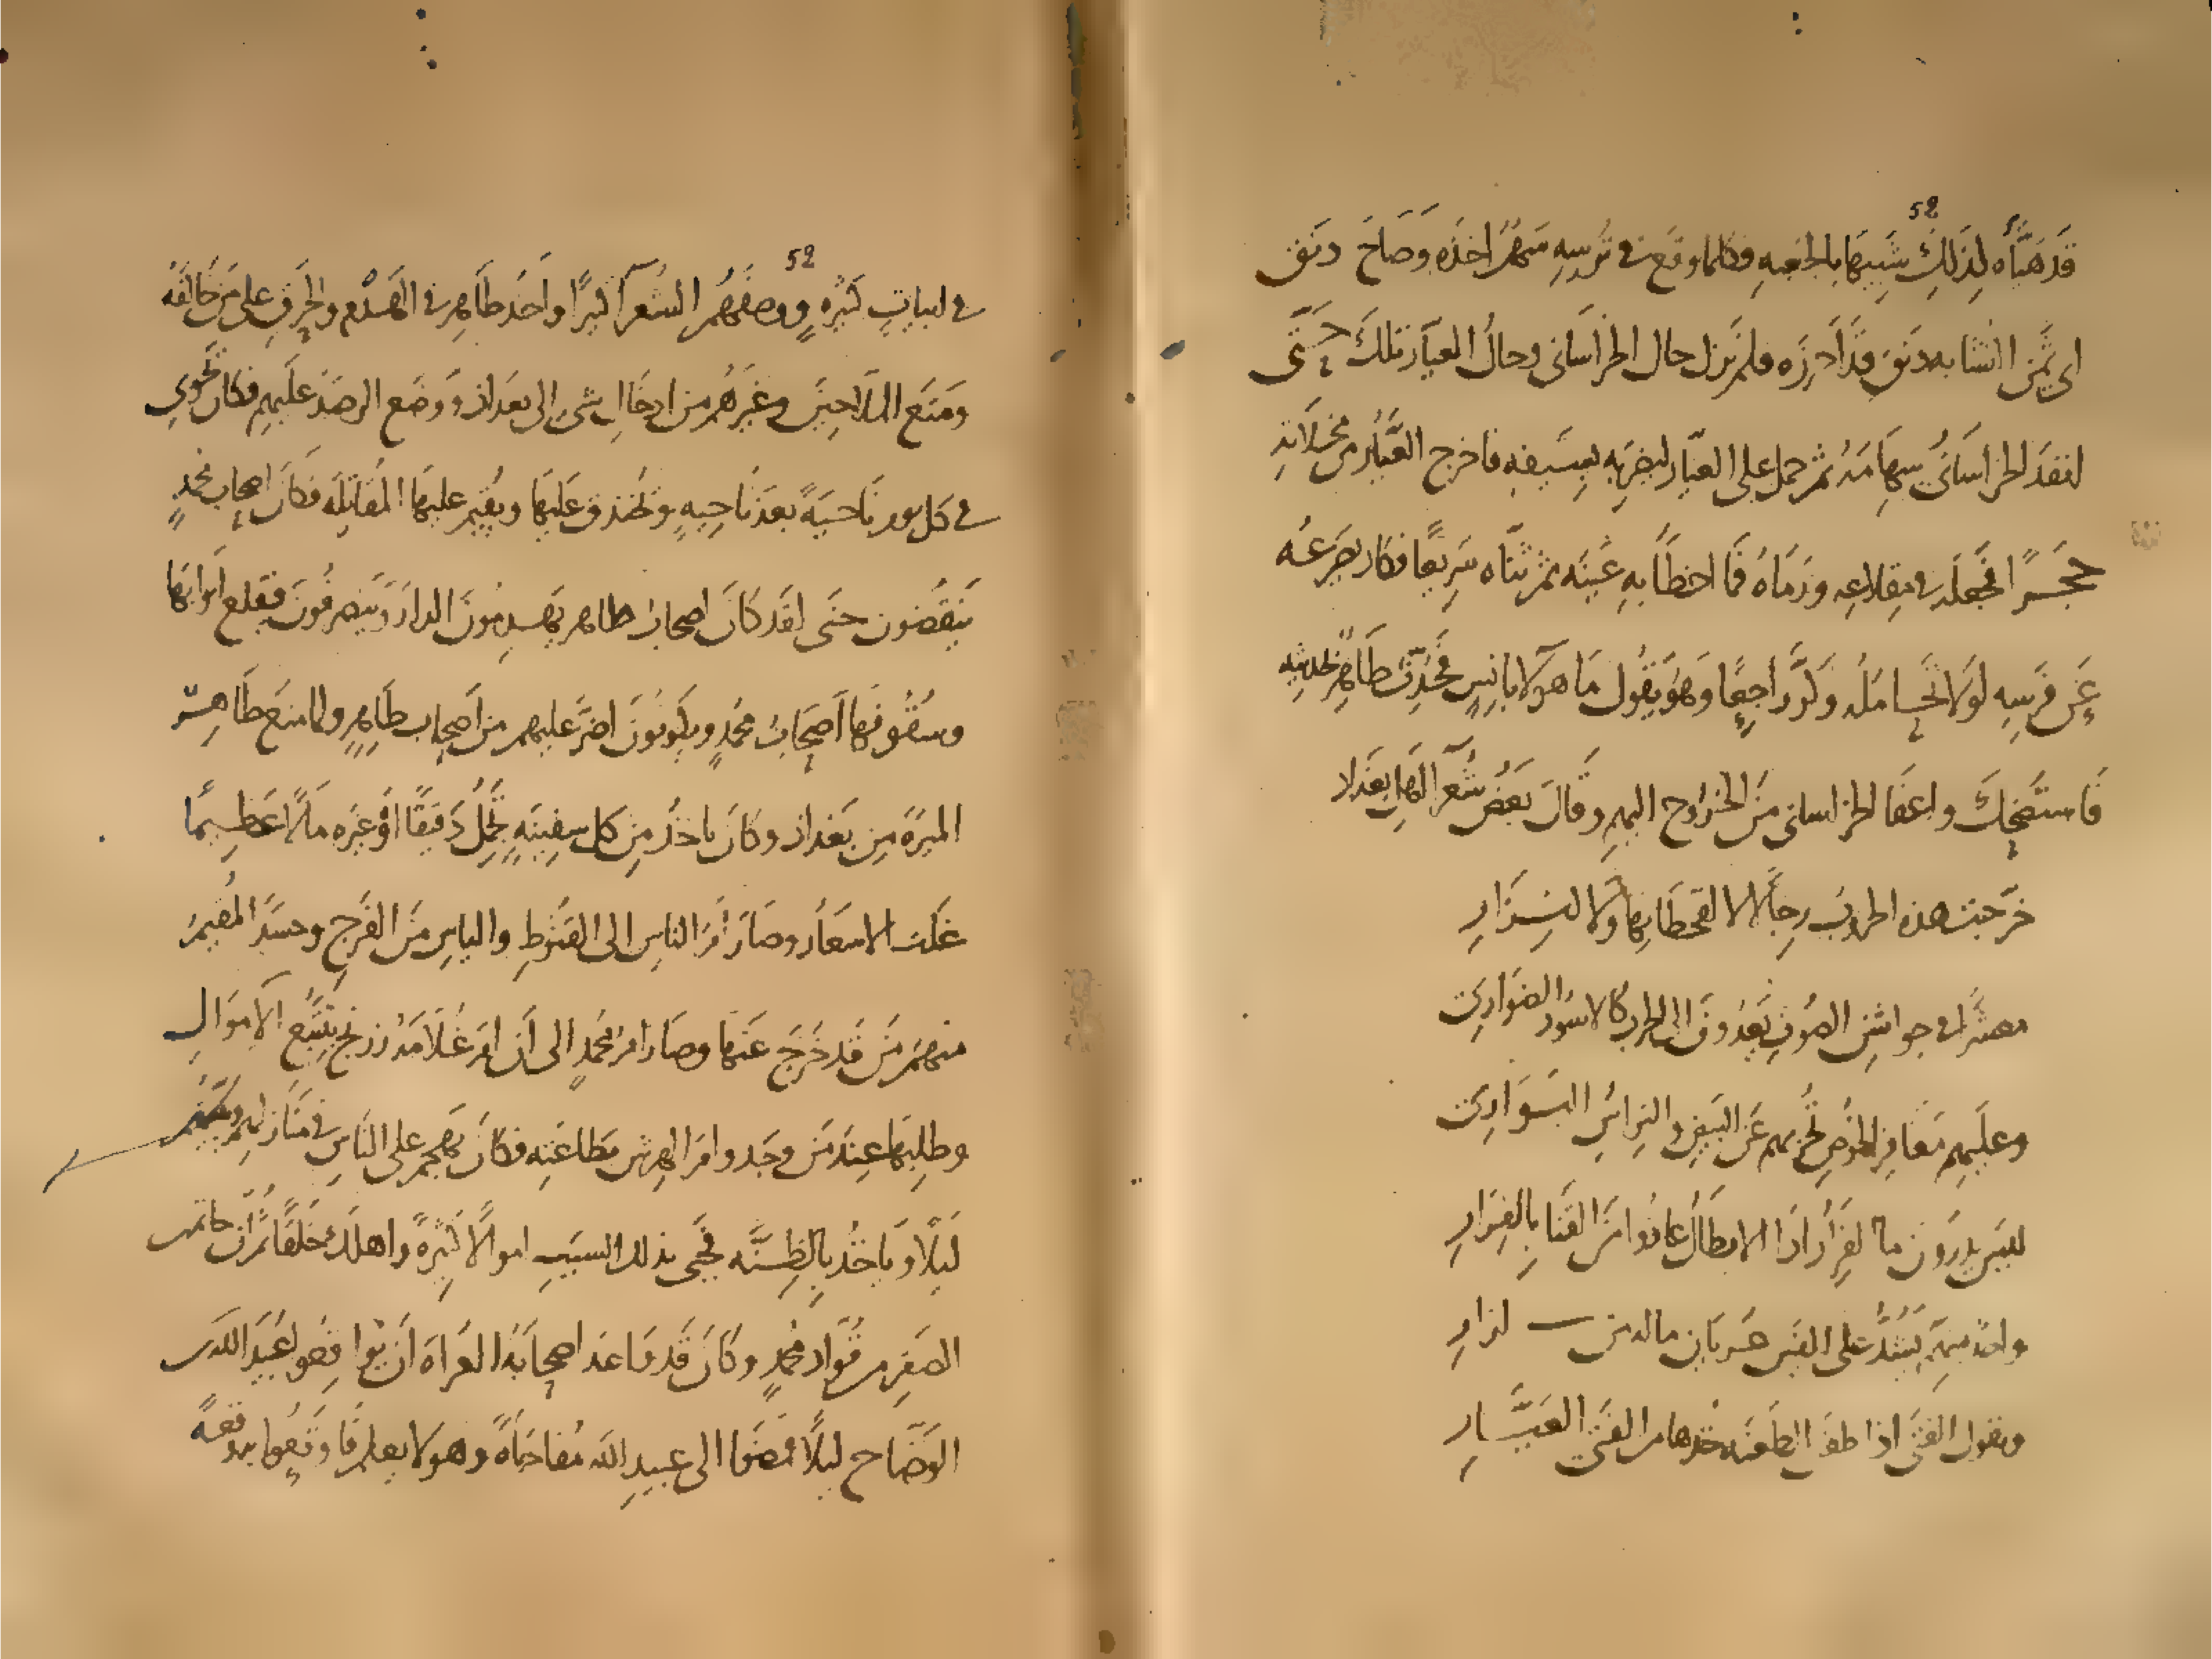 52
قَد هَيَّأَه لِذَلِكَ شَبِيهًا بِالجَعبهِ فكلما وقَع في تُرسِهِ سَهمٌ اخذَه وَصَاحَ دنَق
اى ثمَن النشابه دنَق قَد اَحرزَه فلم يَزل حال الخراسَانى وحالُ العيَّار تلكَ حَتَّى
انفدَ الخراسَانُى سِهَامَهُ ثم حمل على العيّار ليضرِبَه بِسَيفهِ فاخرج العَيَّارُ من مخلاتهِ
حجَرًا فجعَله في مِقلاعِه ورَمَاهُ فمَا اخطَأ بهِ عَينَه ثم ثنَّاه سَرِيعًا فكاد يصرَعُه
عَن فرَسِهِ لَولا تحَامله وكرَّ راجِعًا وَهوَ يقُول مَا هولا بانِسٍ فحُدِّثَ طَاهِر بحديثِه
فَاستَضحكَ واعفَا الخراسانى مِنَ الخروج اليهِم وقَالَ بَعضُ شُعَرا اهلِ بغدَاد
خرَّجت هذه الحروبُ رِجَالا لا لقحطَانِها ولا لنِزَارِ
معشَرا في جواشنِ الصُوفِ يَغدُونَ الى الحرب كالاسُودِ الضوَارِى
وعلَيهِم مَغافِر الخُوصِ تُجزِيهم عَن البَيضِ والتِراسُ البَوَارِى
ليسَ يدرُون ما الفِرَارُ اذَا الابطَالُ عاذُوا مِنَ القَنا بِالفِرَارِ
واحدٌ منهُم يَشُدُّ على الفَين عُريَانِ ماله من ازارِ
ويقول الفَتَى اذا طعَن الطعنَه خُذها من الفَتى العَيَّارِ
52
في ابياتٍ كَثيره ووصفَهُم الشُعرآ كثيرًا واَخذ طَاهِر في الهَدْم والحَرقِ على مَن خَالفَه
ومَنَع الملَّاحِينَ وغيرَهُم من ادخَالِ شىءٍ الى بغدَاد ووضَع الرصدَ علَيهِم فكان يَحوِى
في كل يوم نَاحيَةً بعدَ نَاحِيهٍ ويُخندق عَليَها ويُقِيم عليهَا المُقَاتِلَه فكَانَ اصحاب محمدٍ
يَنقُضُون حتَى لقَد كَانَ اصحابُ طاهر يَهدِمُونَ الدارَ ويَنصرِفُونَ فيَقلع اَبوابَها
وسُقُوفهَا اَصحَابُ محُمدٍ ويكونُونَ اضرَّ عليهم من اَصحاب طَاهِرٍ ولما منعَ طَاهِر
المِيرَةَ مِن بَغداد وكانَ ياخذُ مِن كل سفِينَهٍ تحمِلُ دَقيقًا اَو غيرَه مَالًا عَظِيمًا
غلَت الاسعَار وصَارَ اَمر الناسِ الى القنُوطِ والياسِ مِن الفَرجِ وحسَدَ المُقِيمُ
منهم مَن قَد خَرجَ عَنهَا وصَار امرُ محُمدٍ الى اَن امَر غُلامَهُ زريح بتتبُّع الاموَالِ
وطلِبهَا عِندَ مَن وجَد وامَر الهِرش بطاعَتِه فكانَ يَهجم على النَاسِ في مَنَازِلهِم ويُبَيِّتُهُم
لَيلًا ويَاخذُ بِالظِنَّه فجَبَى بذلك السبَبِ اموالًا كَثِيرَةً واهلَك خَلقًا ثم اَن حاتم
الصَقِر من قُوّاد محُمدٍ وكانَ قَد وَاعدَ اصحَابَهُ العُراهَ اَن يُوافِقُو عُبَيدَ الله بن
الوضَّاح ليلًا فمضَوا الى عبيدِ الله مُفاجاةً وهو لا يعلم فاوقَعُوا به وقعةً